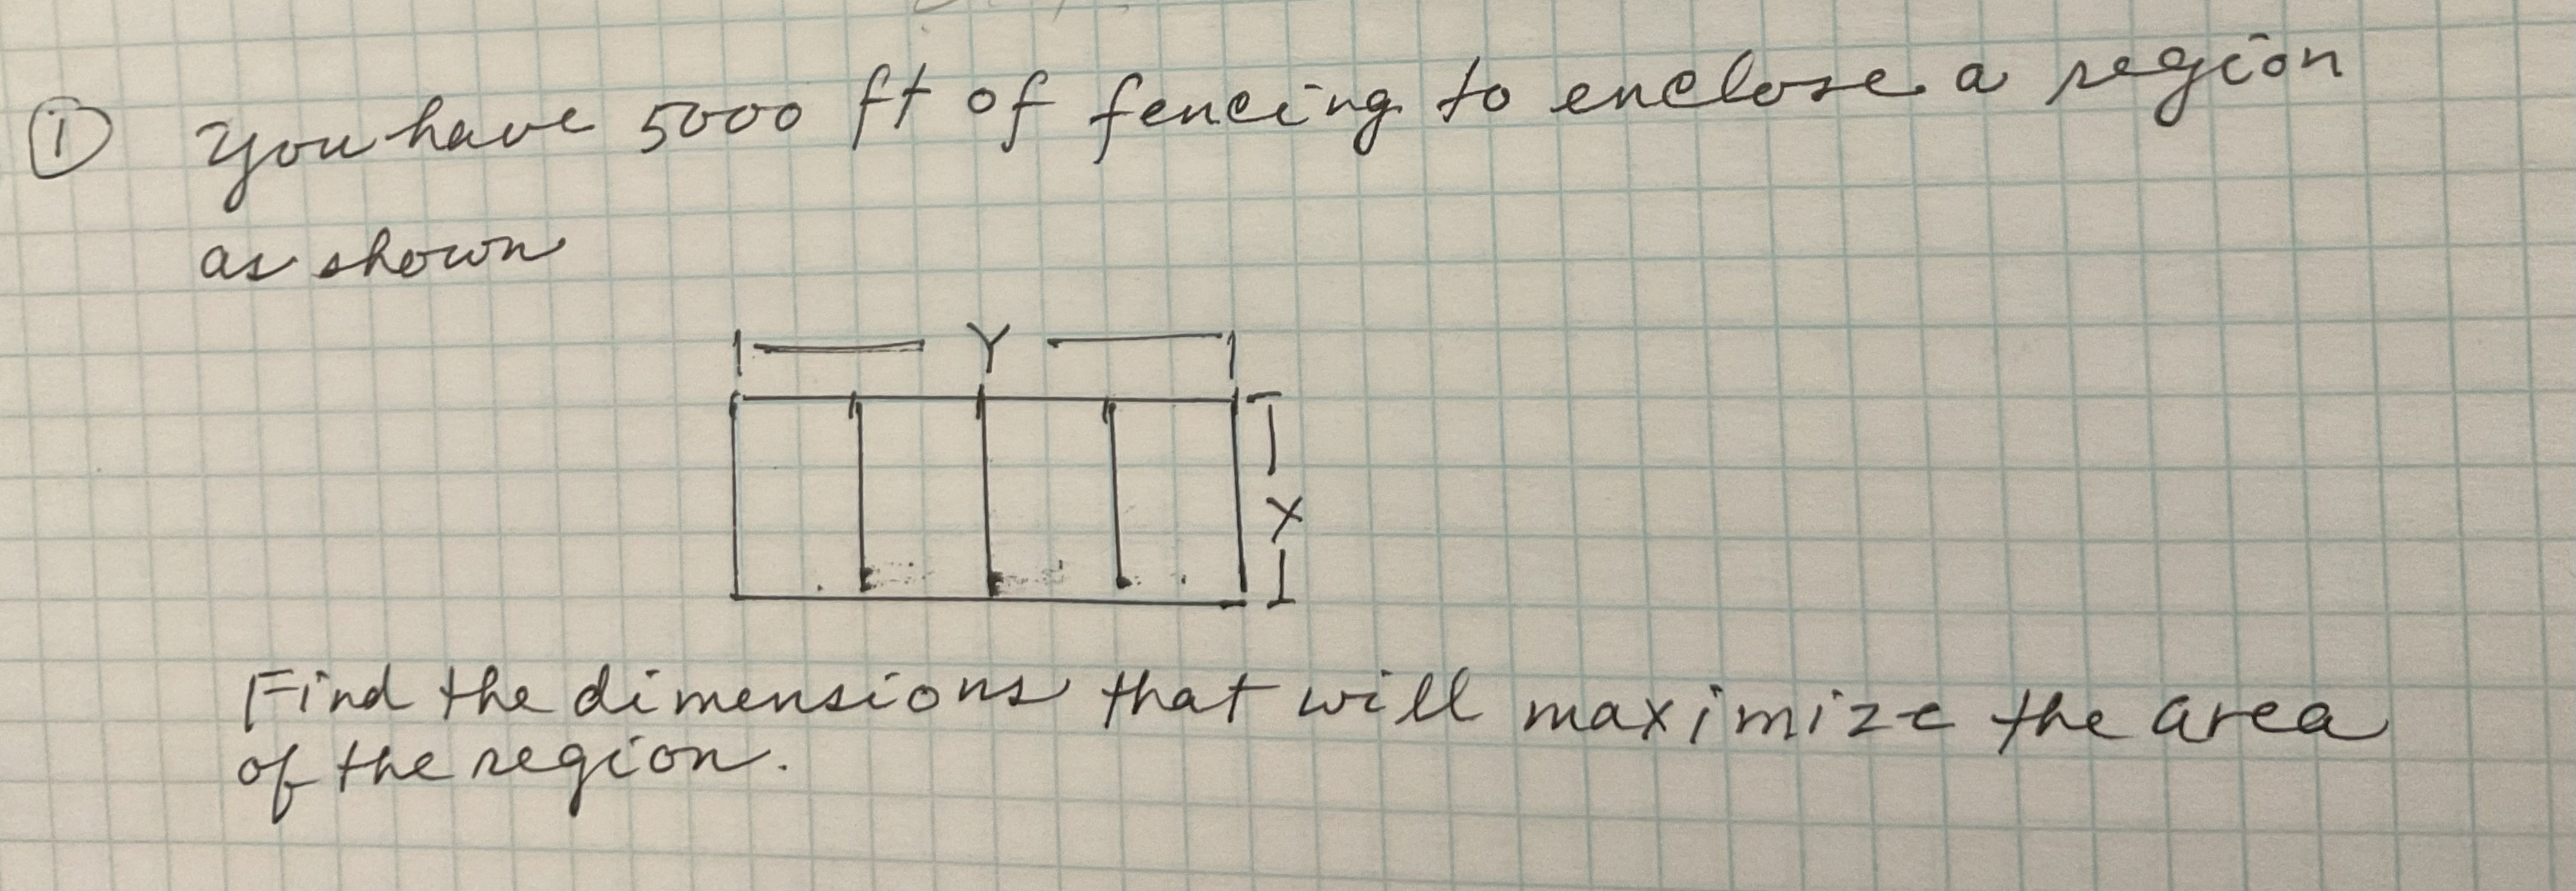 ① You have 5000 ft of fencing to enclose a region
as shown
Y
X
Find the dimensions that will maximize the area
of the region.